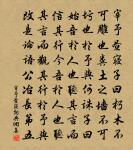 宰予晝寢子曰朽木不
可雕也糞土之墙不可
圬也於予與何誅子曰
始吾於人也聽其言而
信其行今吾於人也聽
其言而觀其行於予與
改是論語公冶長第五